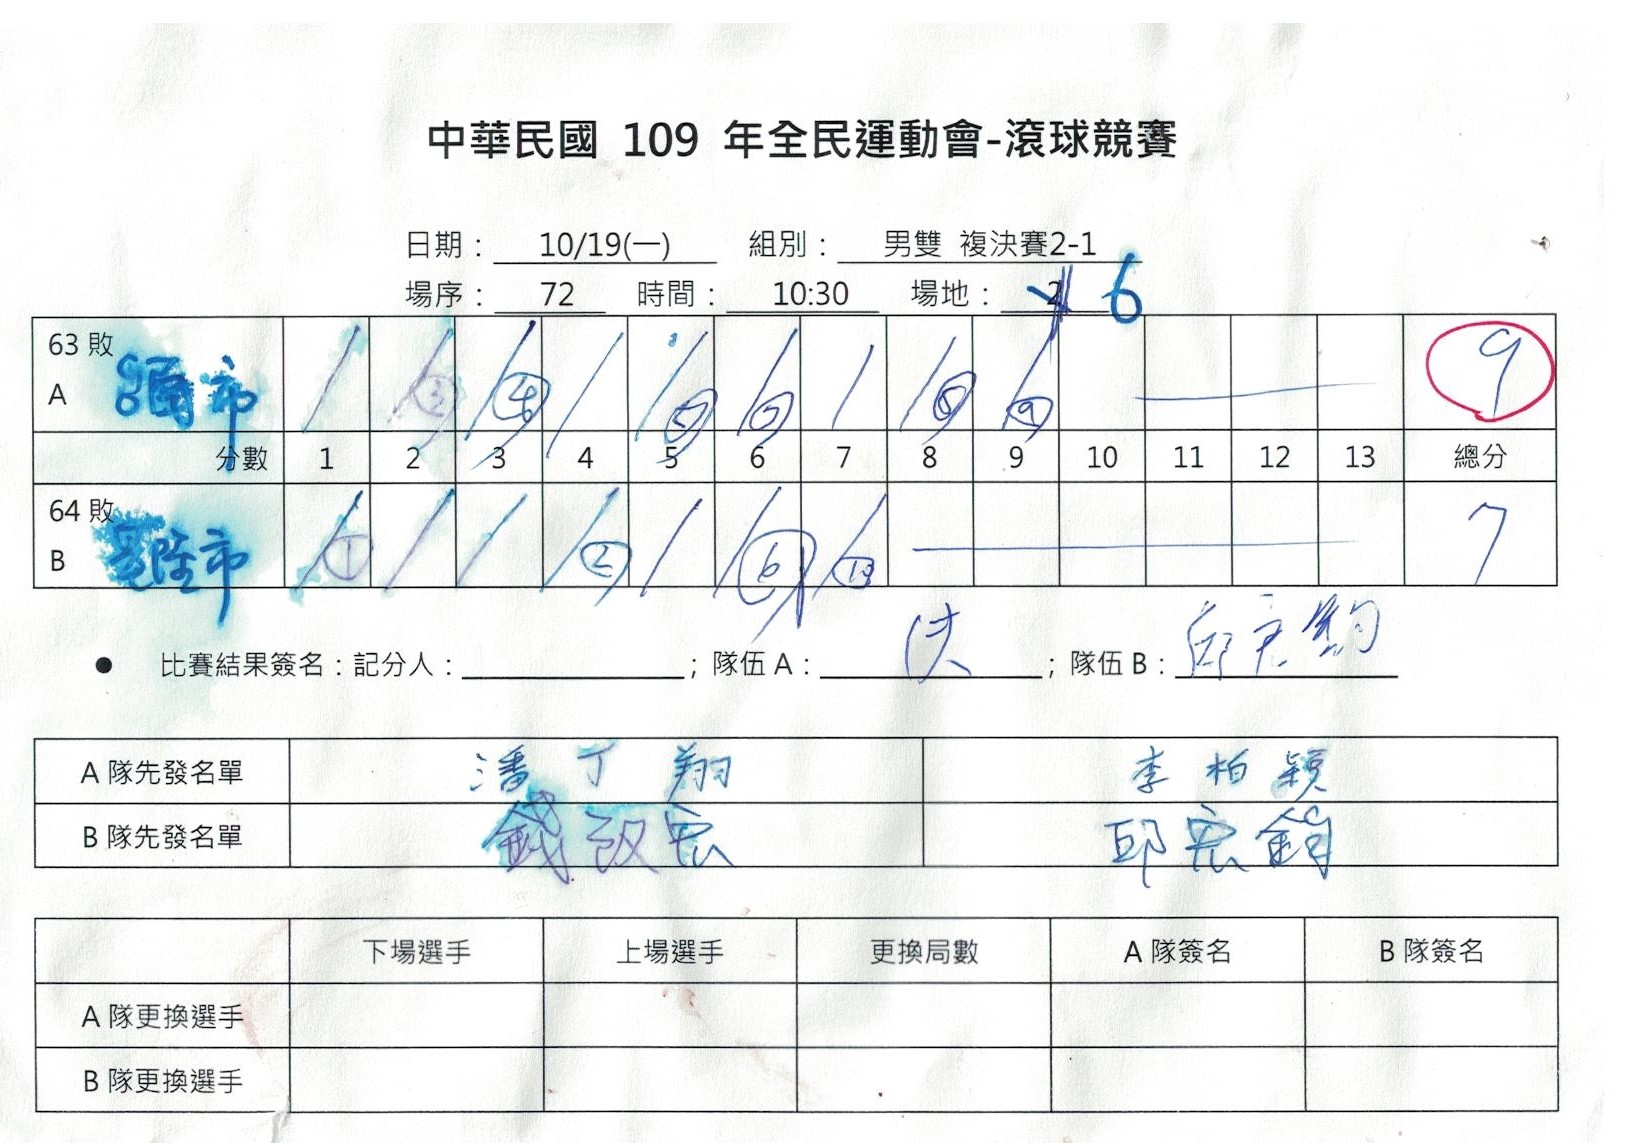 中華民國 109 年全民運動會-滾球競賽
日期： 10/19(一) 組別： 男雙 複決賽2-1
場序： 72 時間： 10:30 場地： 2 6
63 敗
A 市 3 4 5 7 8 9 9
分數 1 2 3 4 5 6 7 8 9 10 11 12 13 總分
64 敗
B 隆市 1 2 6 10 7
● 比賽結果簽名：記分人： ；隊伍 A： ；隊伍 B： 邱宏
A 隊先發名單 潘丁翔 李柏穎
B 隊先發名單 錢 宏 邱宏
下場選手 上場選手 更換局數 A 隊簽名 B 隊簽名
A 隊更換選手
B 隊更換選手